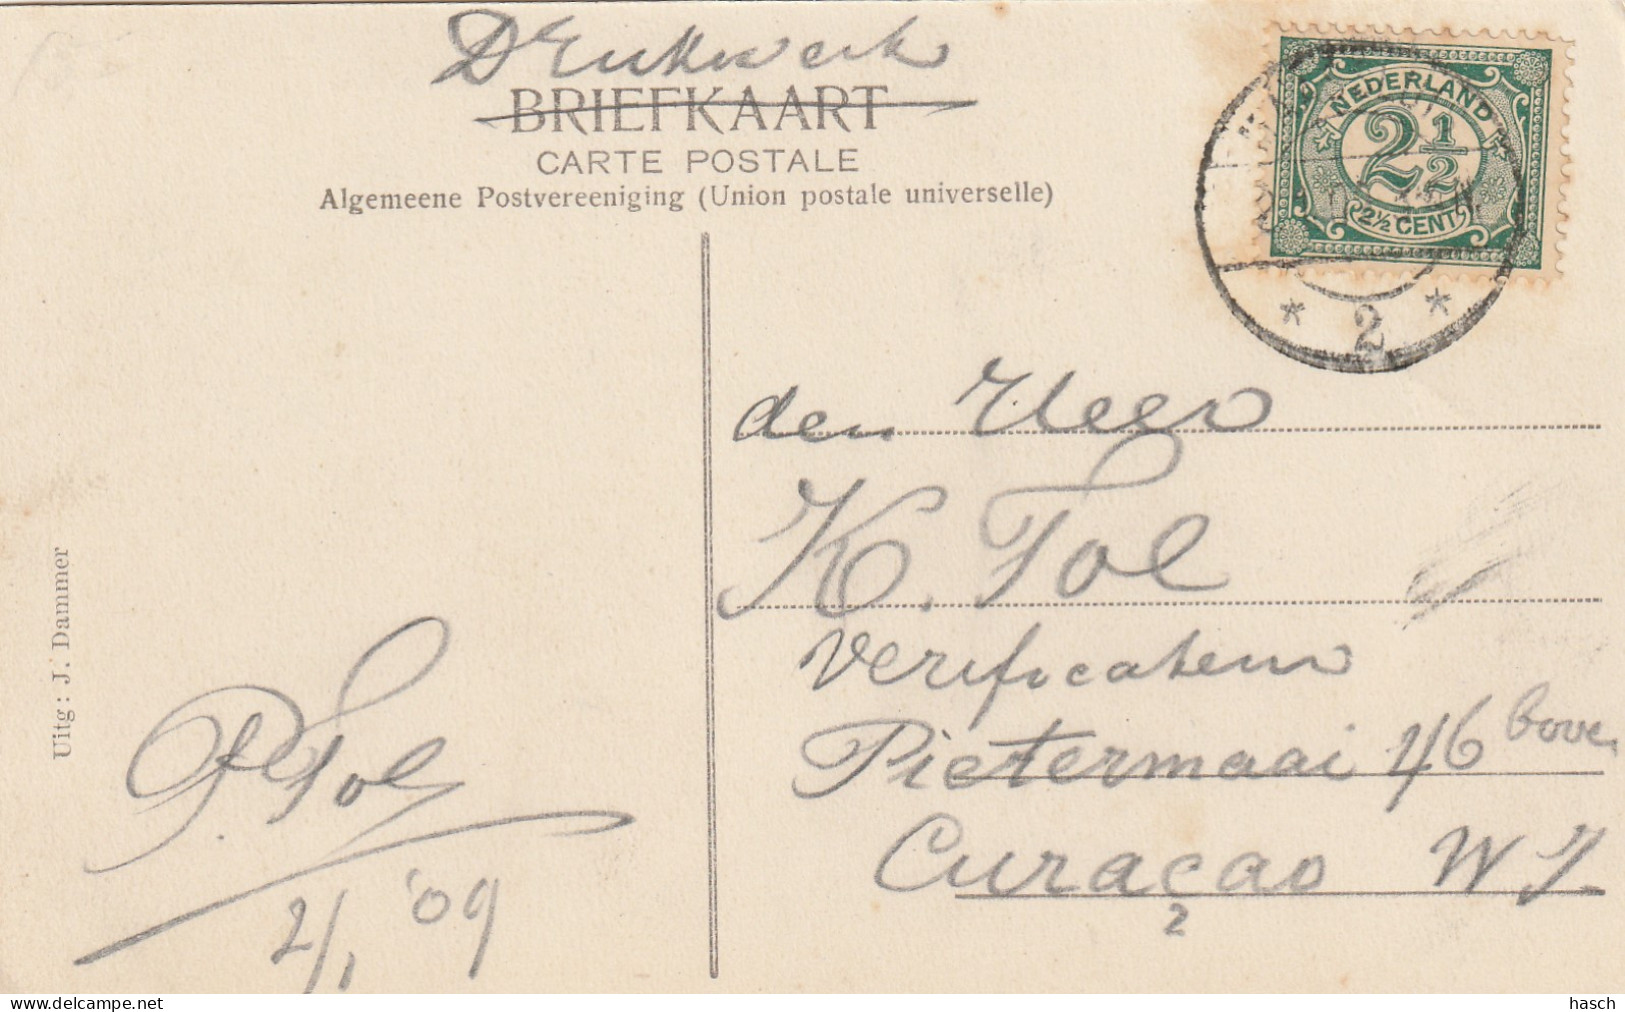 Drukwerk
BRIEFKAART
CARTE POSTALE
Algemeene Postvereeniging (Union postale universelle)
NEDERLAND
2 1/2
2½ CENT
* 2 *
den Heer
K. Tol
Verificateur
Pietermaai 46 boven
Curaçao W I
2
Uitg: J. Dammer
P. Tol
2/1 '09
hasch
delcampe.net